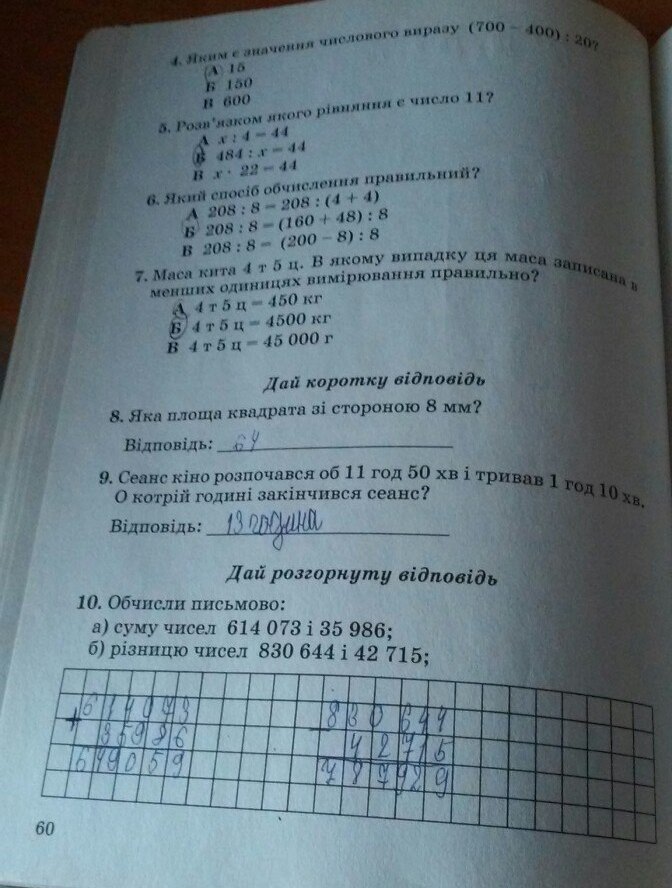 4. Яким є значення числового виразу (700 – 400) : 20?
А 15
Б 150
В 600
5. Розв'язком якого рівняння є число 11?
А х : 4 = 44
Б 484 : х = 44
В х · 22 = 44
6. Який спосіб обчислення правильний?
А 208 : 8 = 208 : (4 + 4)
Б 208 : 8 = (160 + 48) : 8
В 208 : 8 = (200 – 8) : 8
7. Маса кита 4 т 5 ц. В якому випадку ця маса записана в
менших одиницях вимірювання правильно?
А 4 т 5 ц = 450 кг
Б 4 т 5 ц = 4500 кг
В 4 т 5 ц = 45 000 г
Дай коротку відповідь
8. Яка площа квадрата зі стороною 8 мм?
Відповідь: 64
9. Сеанс кіно розпочався об 11 год 50 хв і тривав 1 год 10 хв.
О котрій годині закінчився сеанс?
Відповідь: 13 година
Дай розгорнуту відповідь
10. Обчисли письмово:
а) суму чисел 614 073 і 35 986;
б) різницю чисел 830 644 і 42 715;
614073 830644
+ 35986 – 42715
649059 787929
60